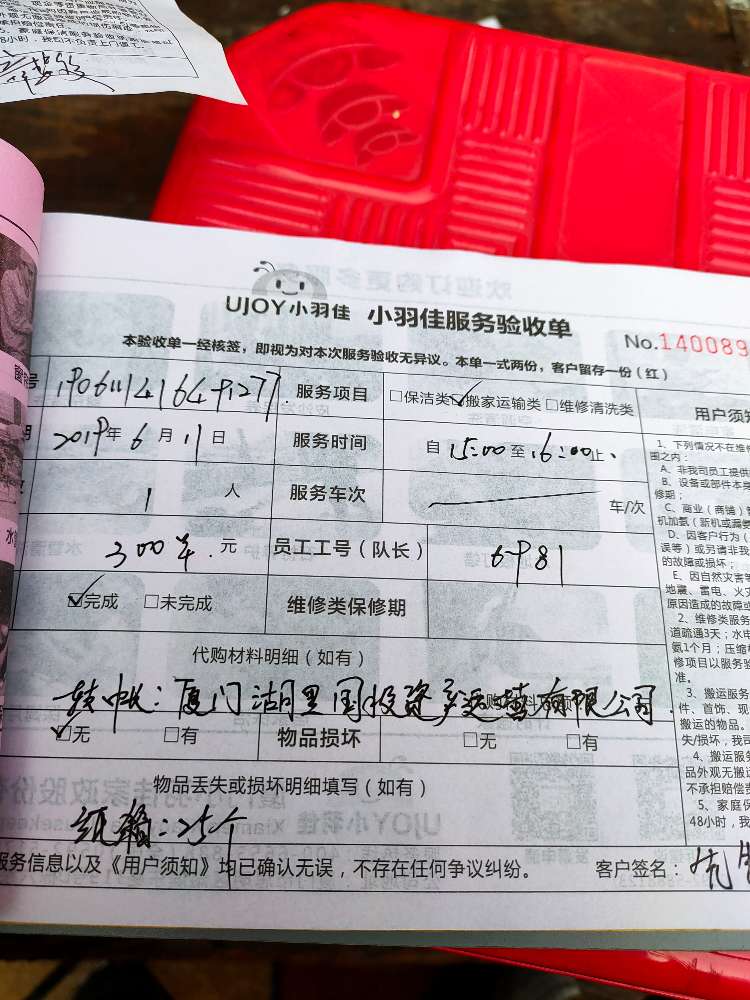 48小时，我
UJOY小羽佳 小羽佳服务验收单
No.140089
本验收单一经核签，即视为对本次服务验收无异议。本单一式两份，客户留存一份（红）
号 服务项目 □保洁类☑搬家运输类□维修清洗类
2019年6月11日 服务时间 自15:00至16:00止
1 人 服务车次 车/次
300 元 员工工号（队长） 6981
☑完成 □未完成 维修类保修期
代购材料明细（如有）
转帐：厦门湖里国投资产运营有限公司
☑无 □有 物品损坏 □无 □有
物品丢失或损坏明细填写（如有）
纸箱：25个
服务信息以及《用户须知》均已确认无误，不存在任何争议纠纷。 客户签名：
用户须知
1、下列情况不在维修
围之内：
A、非我司员工提供
B、设备或部件本身
修期；
C、商业（商铺）
机加氨（新机或漏氨
D、因客户行为（
误等）或另请非我
的故障或损坏；
E、因自然灾害等
地震、雷电、火灾
原因造成的故障或
2、维修类服务
道疏通3天；水电
氨1个月；压缩机
修项目以服务验
准。
3、搬运服务
件、首饰、现
搬运的物品。
失/损坏，我司
4、搬运服务
品外观无搬运
不承担赔偿责
5、家庭保
48小时，我